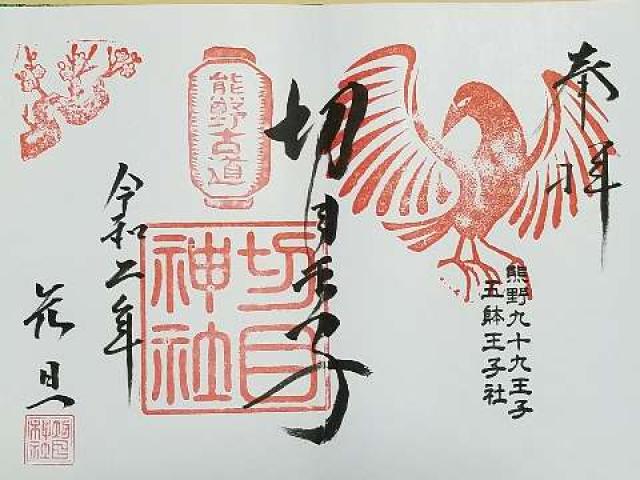 奉拝
熊野九十九王子
五躰王子社
切目王子
熊野古道
切目神社
令和二年